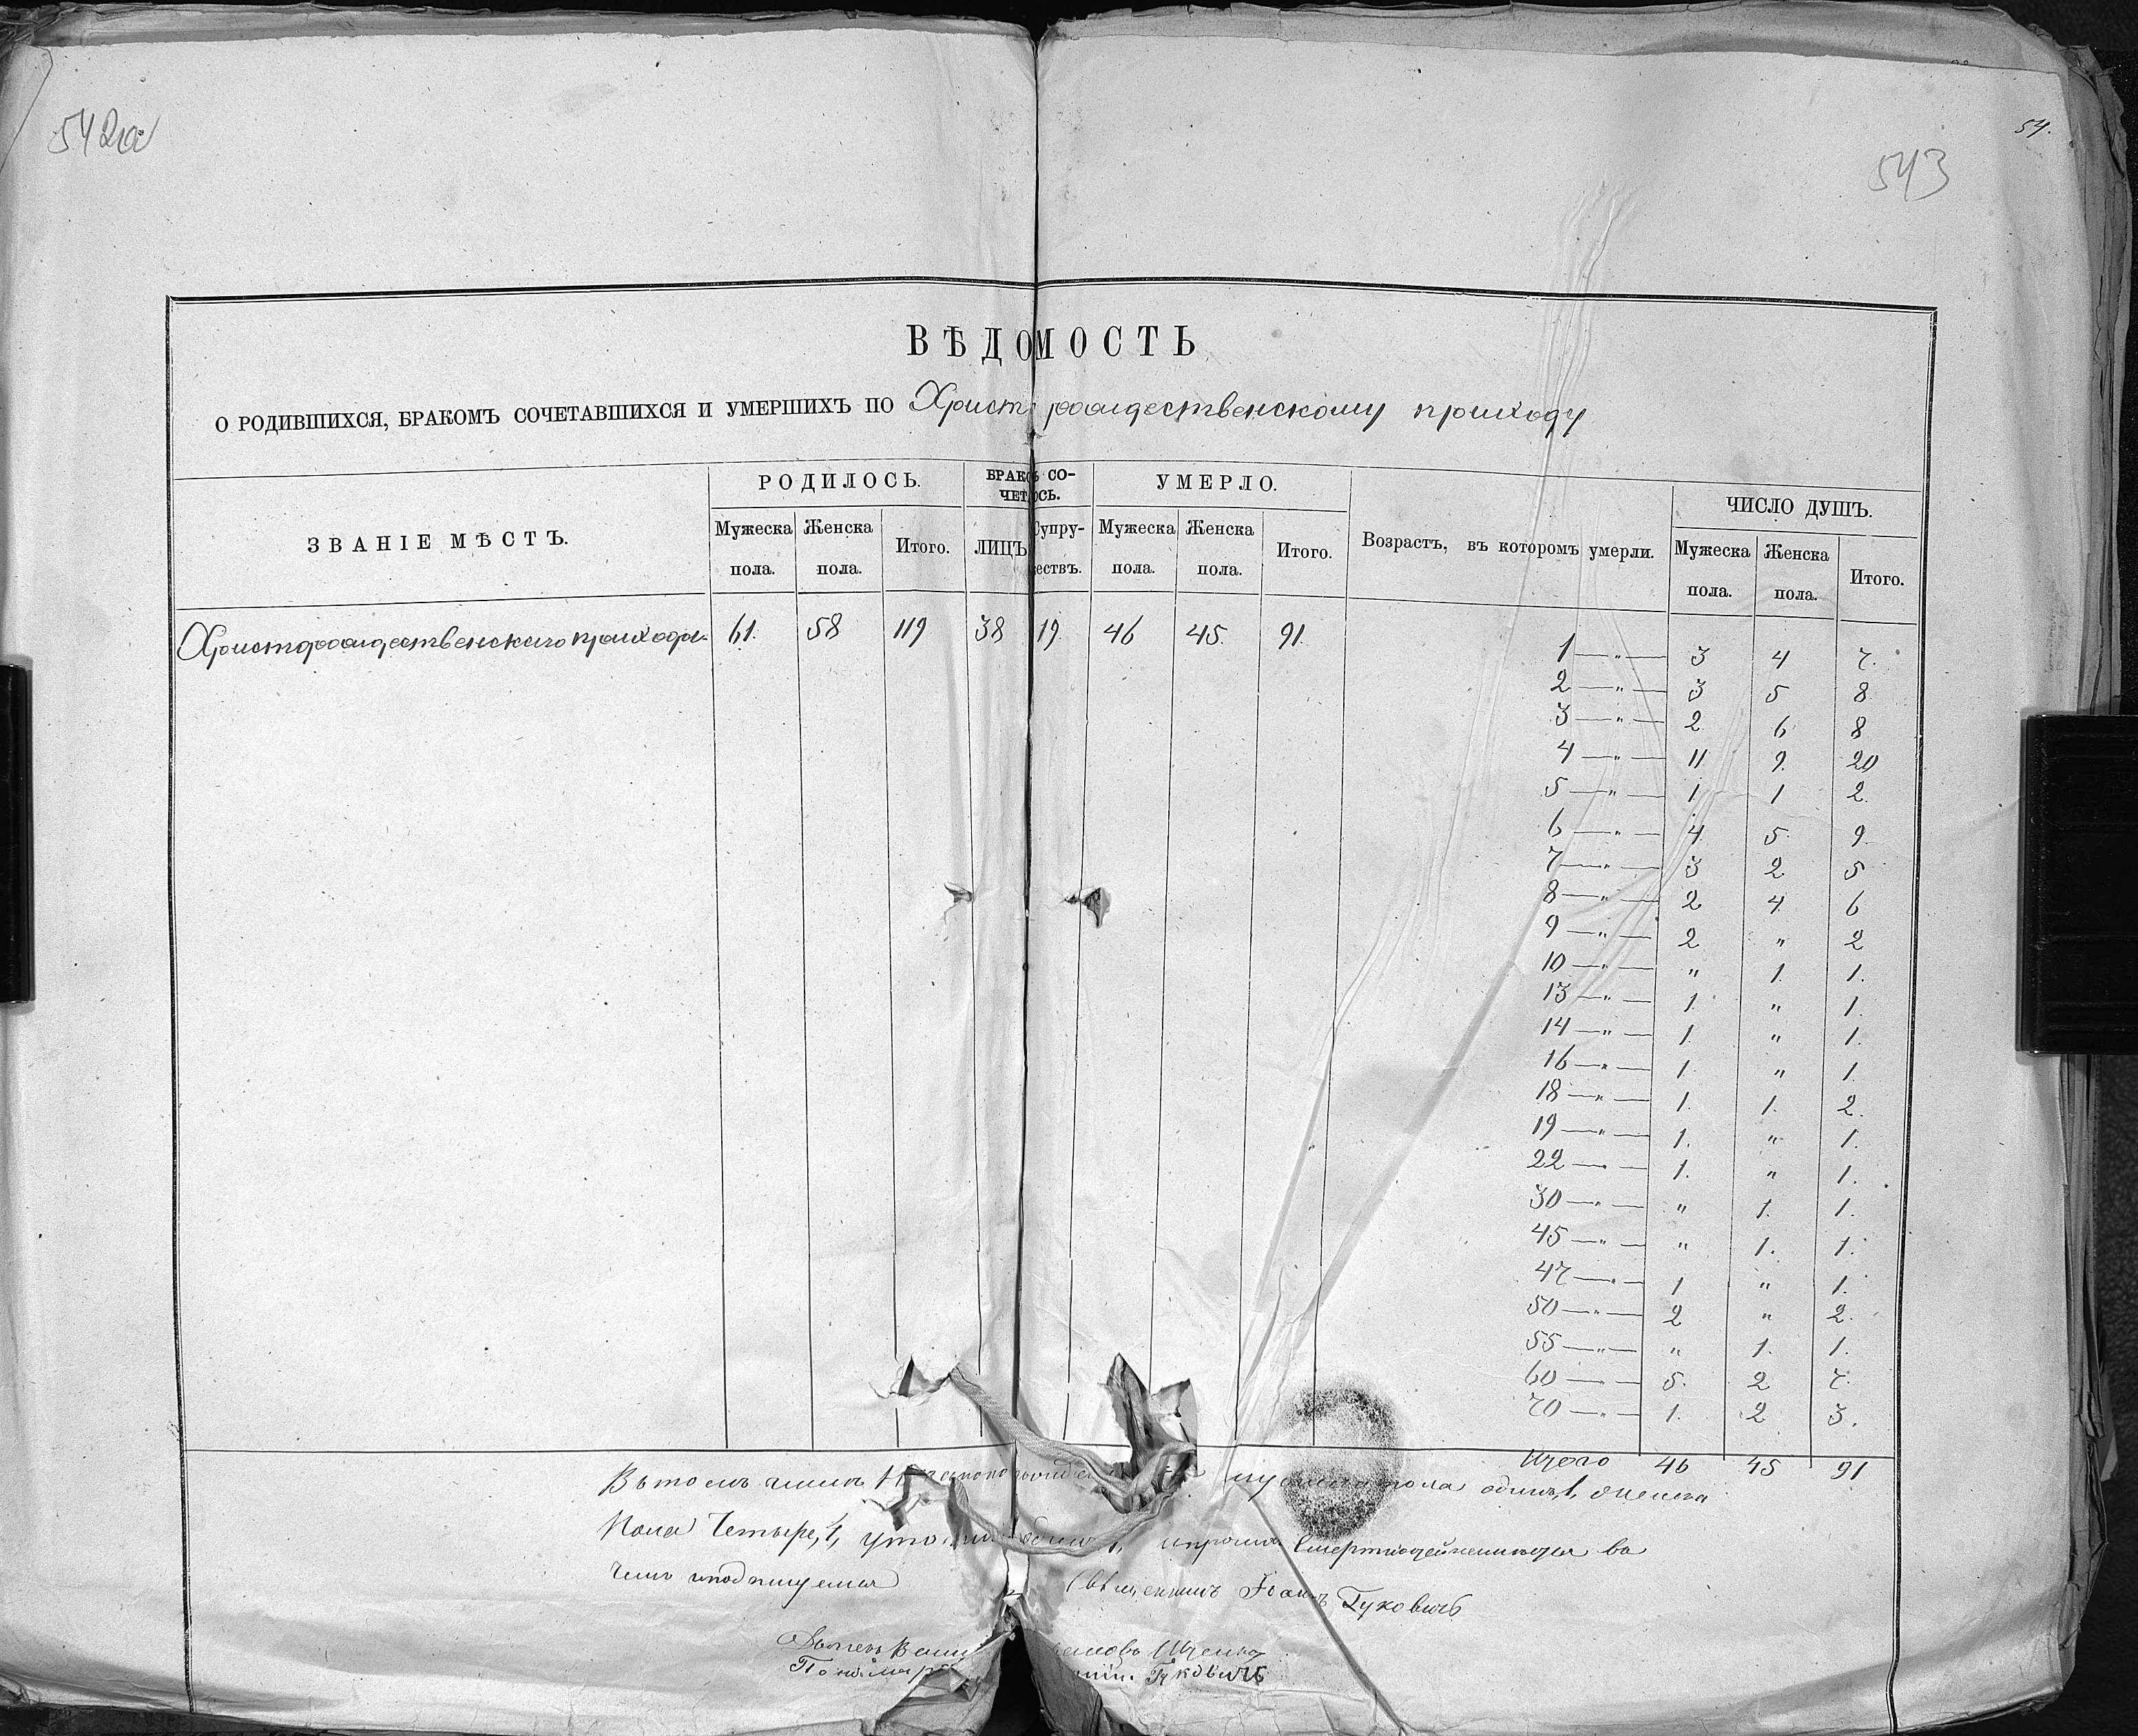 542а
54.
543
ВѢДОМОСТЬ
О РОДИВШИХСЯ, БРАКОМЪ СОЧЕТАВШИХСЯ И УМЕРШИХЪ ПО Христорождественскому приходу
ЗВАНІЕ МѢСТЪ. РОДИЛОСЬ. БРАКОМЪ СО- ЧЕТАЛОСЬ. УМЕРЛО. Возрастъ, въ которомъ умерли. ЧИСЛО ДУШЪ.
Мужеска пола. Женска пола. Итого. ЛИЦЪ Супру- жествъ. Мужеска пола. Женска пола. Итого. Мужеска пола. Женска пола. Итого.
Христорождественскаго прихода. 61. 58 119 38 19. 46 45. 91.
1 — " — 3 4 7.
2 — " — 3 5 8
3 — " — 2 6 8
4 — " — 11 9. 20
5 — " — 1 1 2.
6 — " — 4 5. 9.
7 — " — 3 2 5
8 — " — 2 4. 6
9 — " — 2 " 2
10 — " — " 1. 1.
13 — " — 1. " 1.
14 — " — 1. " 1.
16 — " — 1. " 1.
18 — " — 1. 1. 2.
19 — " — 1. " 1.
22 — " — 1. " 1.
30 — " — " 1. 1.
45 — " — " 1. 1.
47 — " — 1 " 1.
50 — " — 2 " 2.
55 — " — " 1. 1.
60 — " — 5. 2 7.
70 — " — 1. 2 3.
Итого 46 45 91
Въ томъ числѣ пола одинъ, 1, женска
Пола Четыре,
чемъ и подписуемся Священникъ Іоаннъ Гуковичъ
Дьячекъ Ищенко
Пономарь Гуковичъ